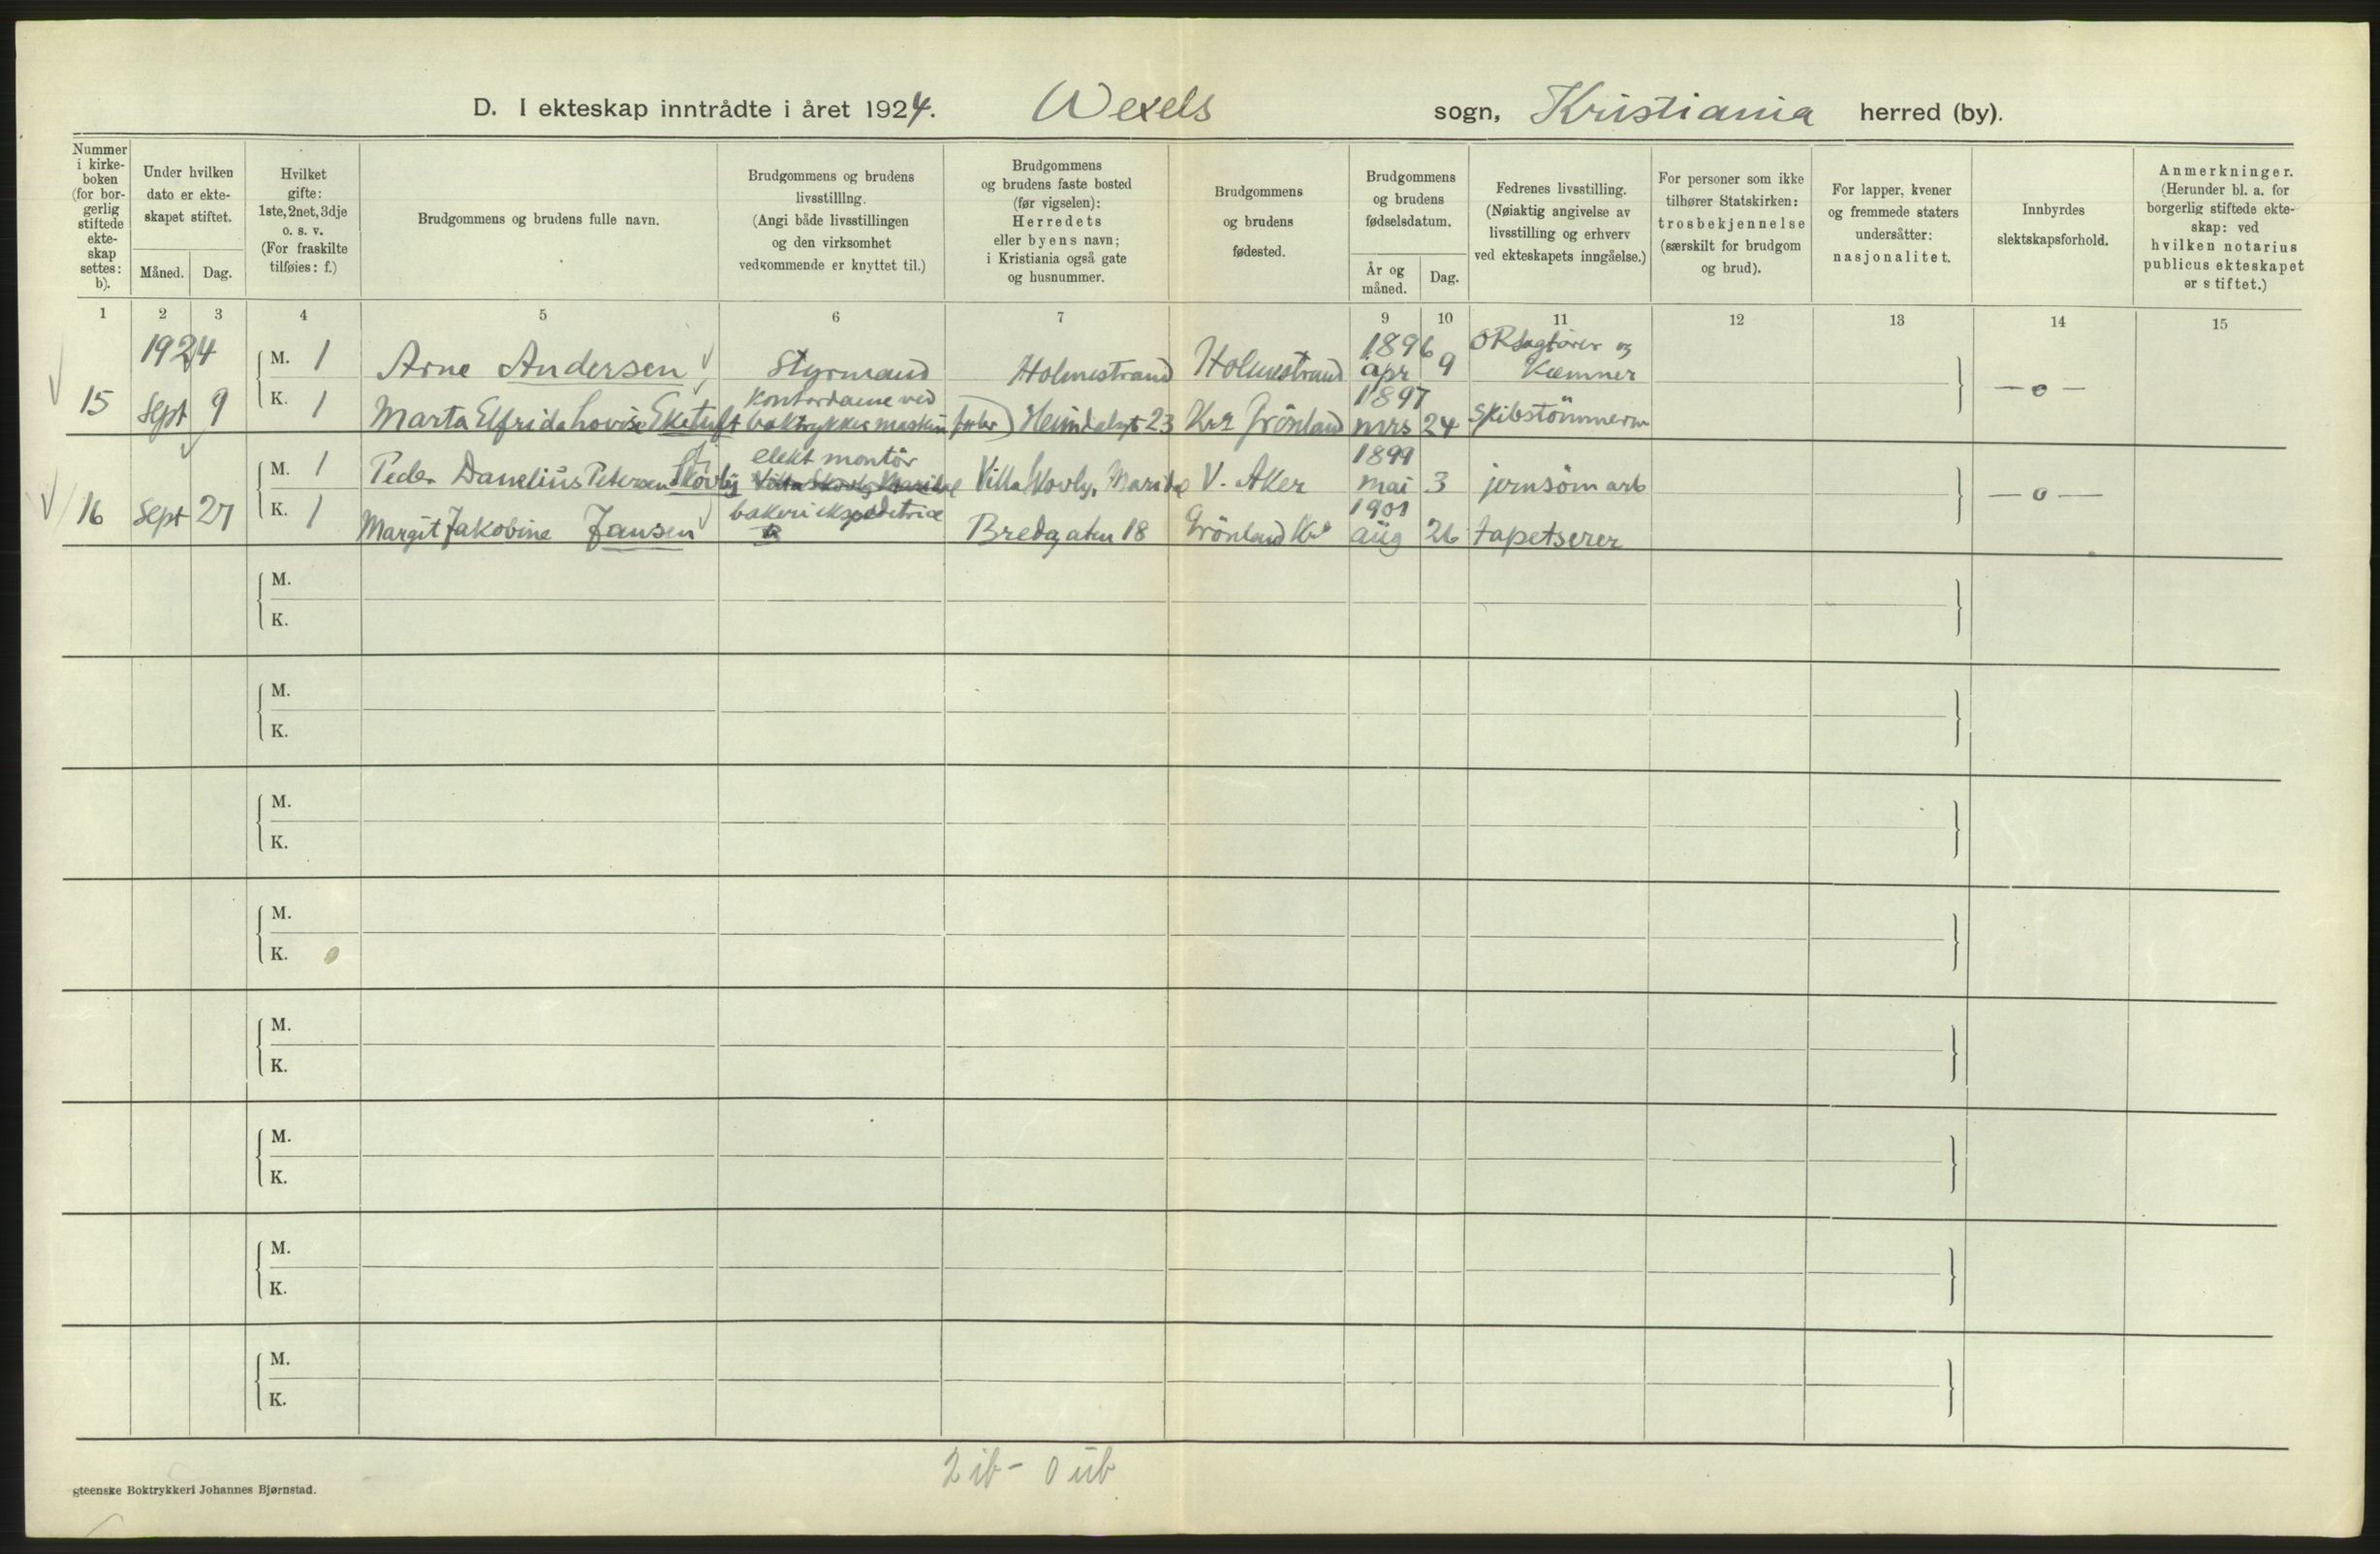 D. I ekteskap inntrådte i året 1924. Wexels sogn, Kristiania herred (by).
Nummer
i kirke-
boken
(for bor-
gerlig
stiftede
ekte-
skap
settes:
b).
Under hvilken
dato er ekte-
skapet stiftet.
Måned. Dag.
Hvilket
gifte:
1ste, 2net, 3dje
o. s. v.
(For fraskilte
tilføies: f.)
Brudgommens og brudens fulle navn.
Brudgommens og brudens
livsstilllng.
(Angi både livsstillingen
og den virksomhet
vedkommende er knyttet til.)
Brudgommens
og brudens faste bosted
(før vigselen):
Herredets
eller byens navn;
i Kristiania også gate
og husnummer.
Brudgommens
og brudens
fødested.
Brudgommens
og brudens
fødselsdatum.
År og
måned.
Dag.
Fedrenes livsstilling.
(Nøiaktig angivelse av
livsstilling og erhverv
ved ekteskapets inngåelse.)
For personer som ikke
tilhører Statskirken:
trosbekjennelse
(særskilt for brudgom
og brud).
For lapper, kvener
og fremmede staters
undersåtter:
nasjonalitet.
Innbyrdes
slektskapsforhold.
Anmerkninger.
(Herunder bl. a. for
borgerlig stiftede ekte-
skap: ved
hvilken notarius
publicus ekteskapet
er stiftet.)
1 2 3 4 5 6 7 9 10 11 12 13 14 15
1924
M. 1 Arne Andersen Styrmand Holmestrand Holmestrand 1896 apr 9 ORsagförer og
Kæmner
15 Sept 9 — o —
K. 1 Marta Elfrida Lovise Kontordame ved
boktrykker maskin Heimdalsgt 23 Kra Grönland 1897 mrs 24 Skibstömmerm
M. 1 Peder Danelius Petersen Skovly elekt montör Villa Skovly, V. Aker 1899 mai 3 jernsöm arb
16 Sept 27 — o —
K. 1 Margit Jakobine Jansen bakeriekspeditrice Bredgaten 18 Grönland Kra 1901 aug 26 tapetserer
M.
K.
M.
K.
M.
K.
M.
K.
M.
K.
M.
K.
M.
K.
M.
K.
2 ib - 0 ub
gteenske Boktrykkeri Johannes Bjørnstad.